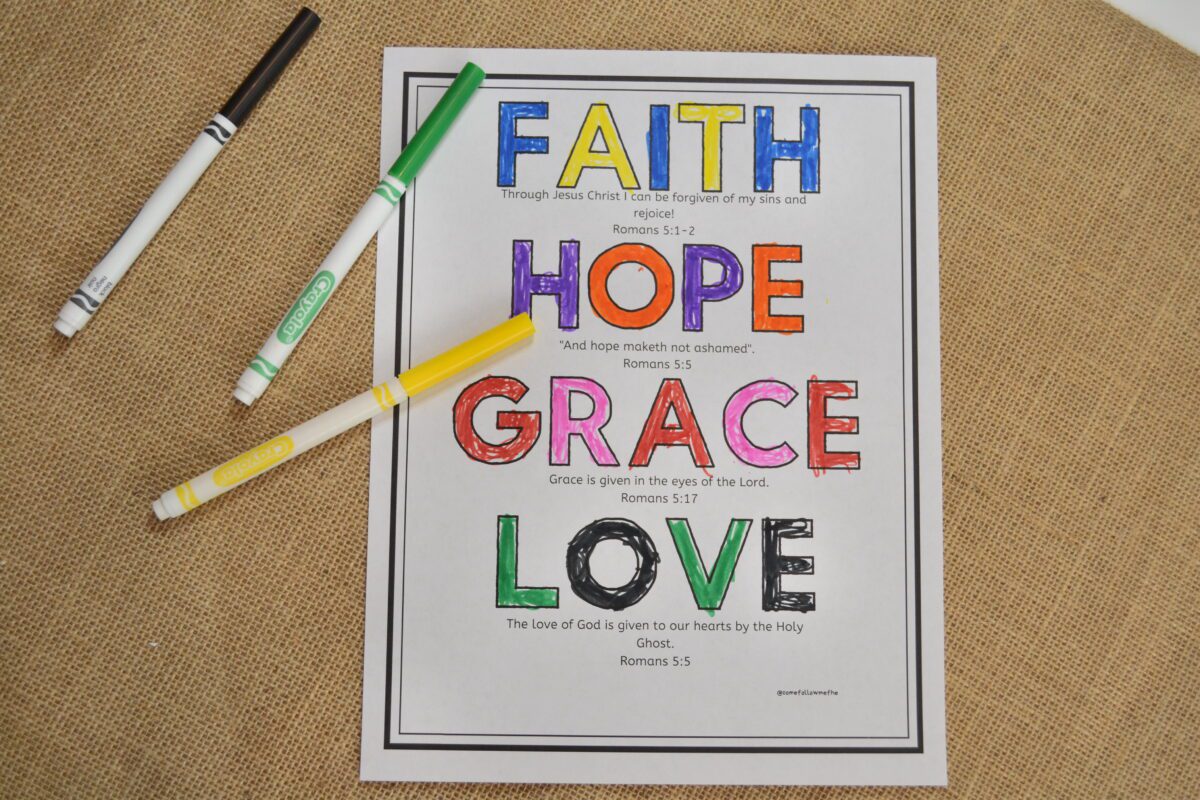 FAITH
Through Jesus Christ I can be forgiven of my sins and
rejoice!
Romans 5:1-2
HOPE
"And hope maketh not ashamed".
Romans 5:5
GRACE
Grace is given in the eyes of the Lord.
Romans 5:17
LOVE
The love of God is given to our hearts by the Holy
Ghost.
Romans 5:5
@comefollowmefhe
black
negro
noir
Crayola
Crayola